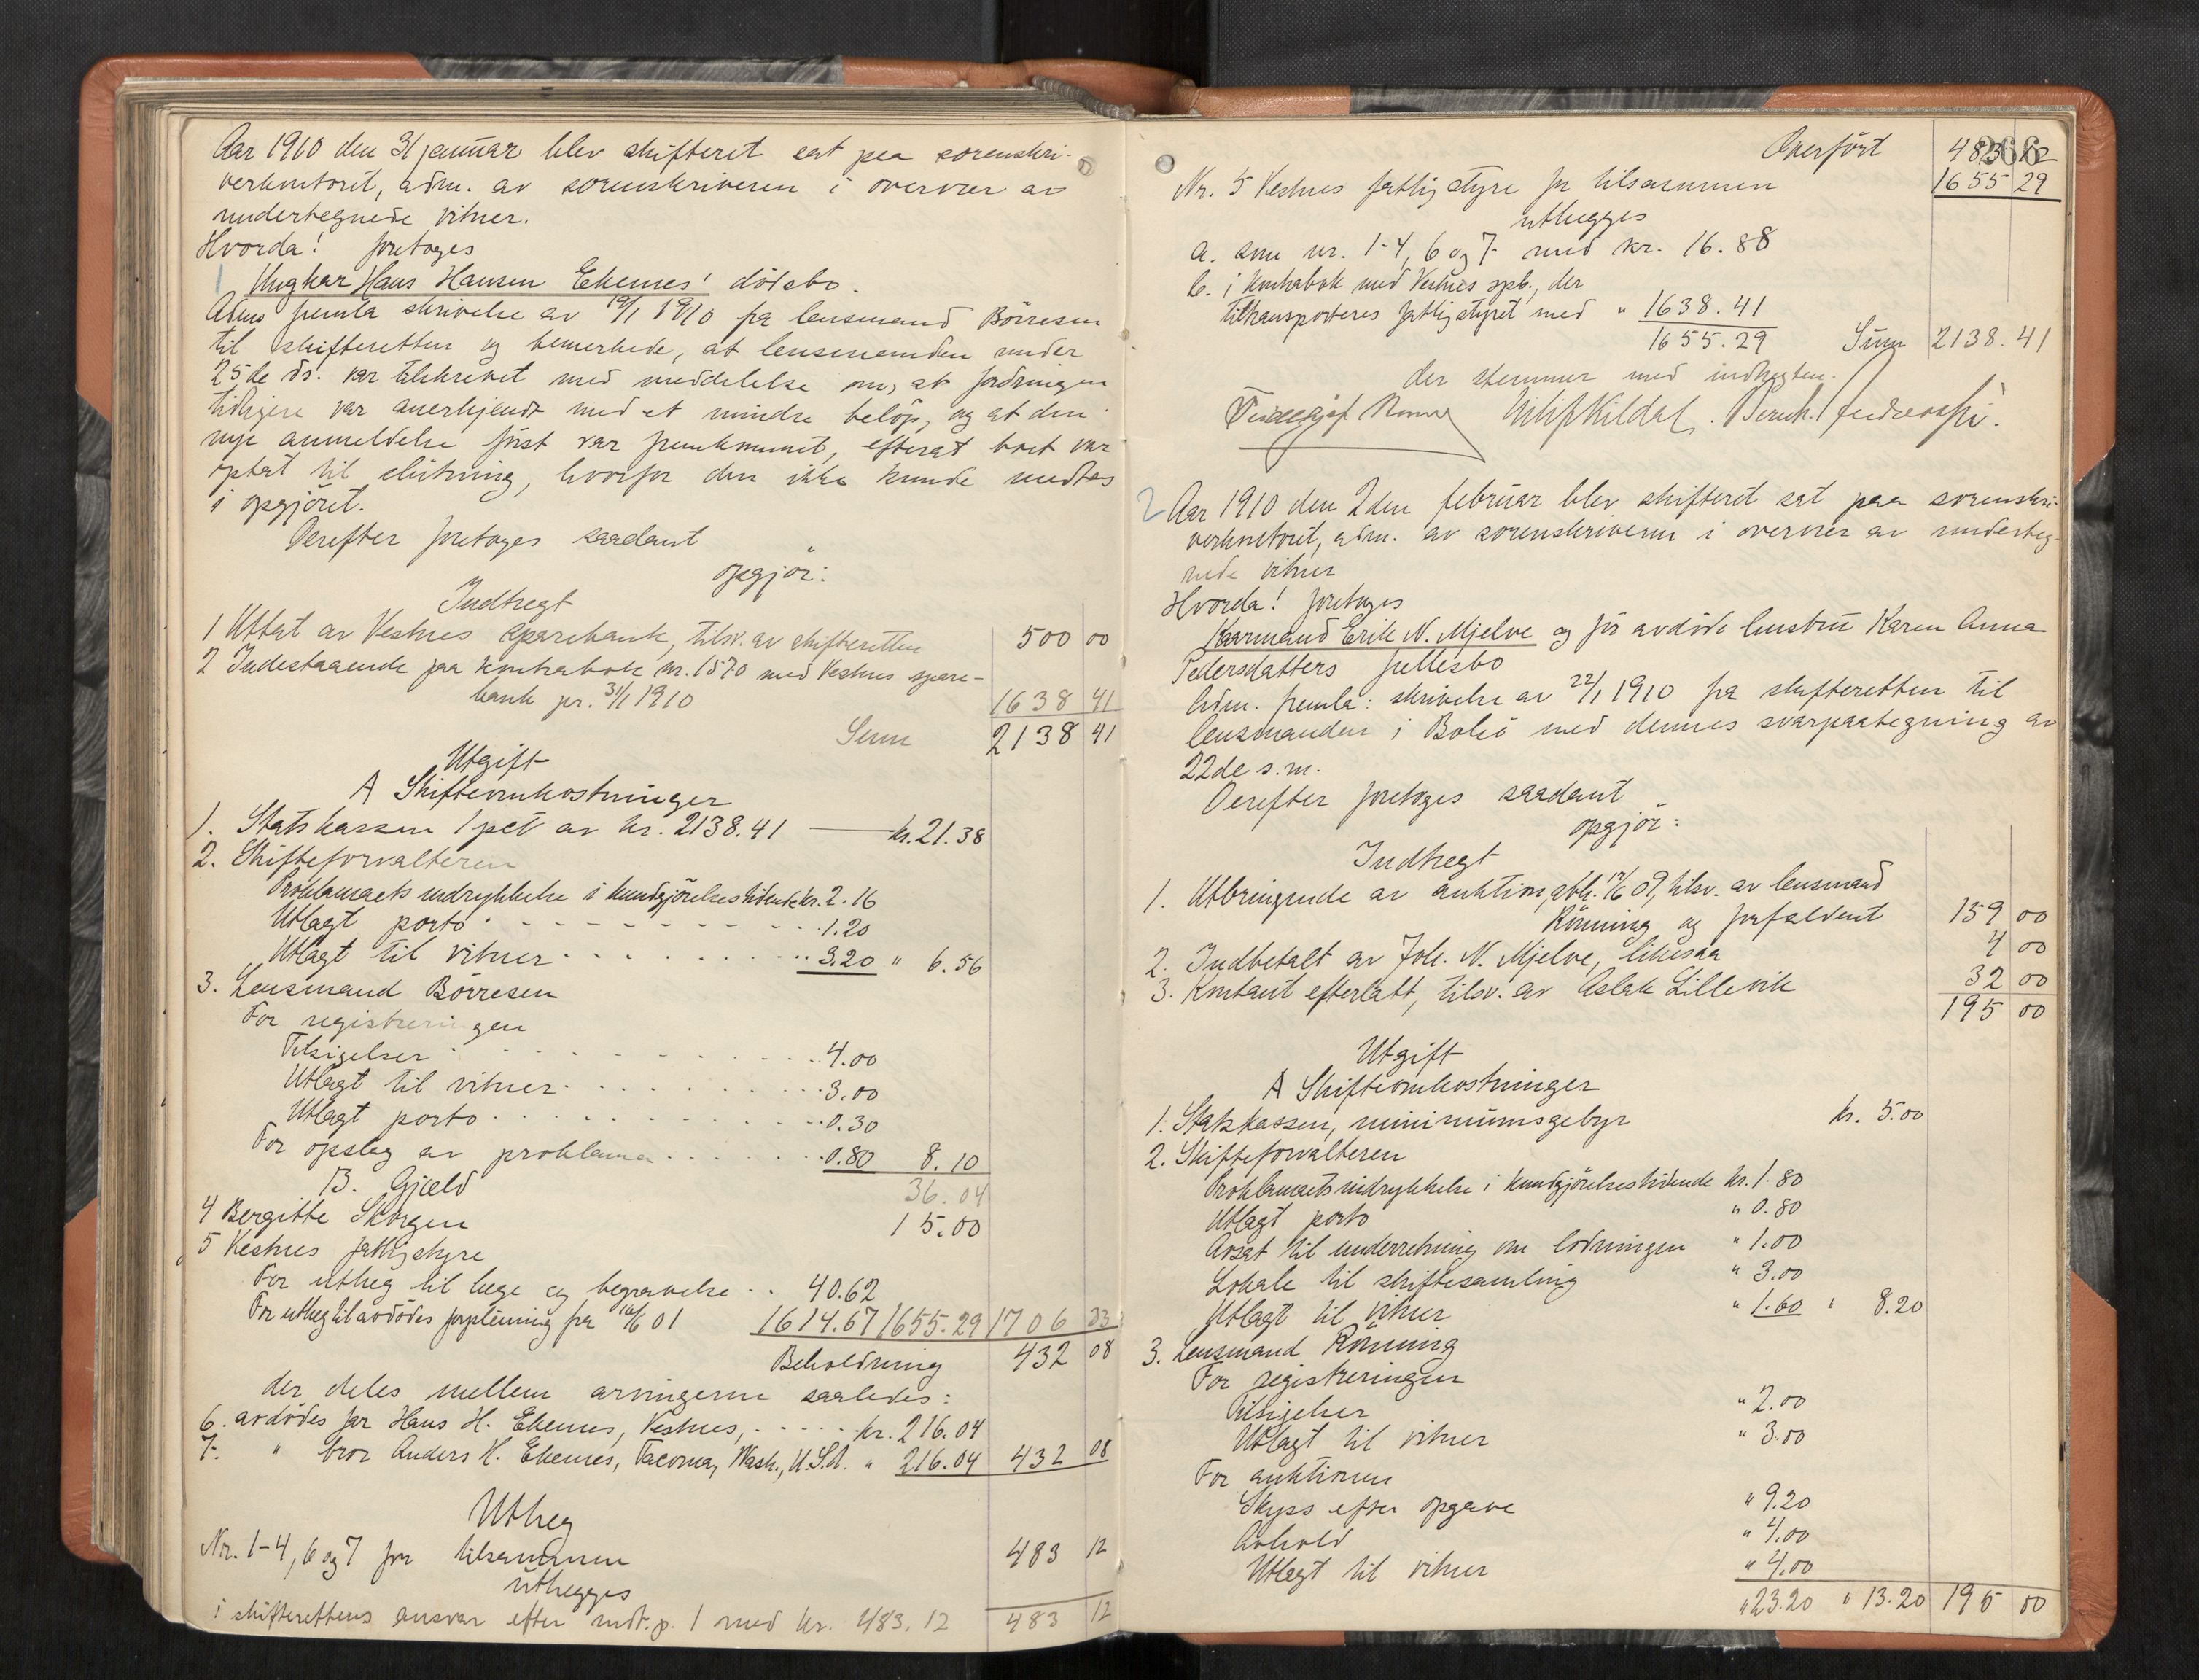 Aar 1910 den 31 januar blev skifteret sat paa sorenskri-
verkontoret, adm. av sorenskriveren i overvær av
undertegnede vitner.
Hvorda! foretoges
1 Ungkar Hans Hansen Ekernes' dödsbo.
Adm fremla skrivelse av 19/1 1910 fra lensmand Börresen
til skifteretten og bemerkede, at lensmanden under
25de ds. var tilskrevet med meddelelse om, at fordringen
tidligere var anerkjendt med et mindre belöp, og at den
nye anmeldelse först var fremkommet, efterat boet var
optat til slutning, hvorfor den ikke kunde medtas
i opgjöret.
Derefter foretoges saadant
opgjör:
Indtægt
1 Uttat av Vestnes sparebank, tilsv. av skifteretten 500 00
2 Indestaaende paa kontrabok nr. 1570 med Vestnes spare-
bank pr. 31/1 1910 1638 41
Sum 2138 41
Utgift
A Skifteomkostninger
1. Statskassen 1 pct av kr. 2138.41 kr. 21.38
2. Skifteforvalteren
Proklamaets indrykkelse i kundgjörelsestidende kr. 2.16
Utlagt porto 1.20
Utlagt til vitner 3.20 " 6.56
3. Lensmand Börresen
For registreringen
Tilsigelser 4.00
Utlagt til vitner 3.00
Utlagt porto 0.30
For opslag av proklama 0.80 8.10
B. Gjæld 36.04
4 Bergitte Skorgen 15.00
5 Vestnes fattigstyre
For utlæg til læge og begravelse 40.62
For utlæg til avdödes forpleining fra 16/6 01 1614.67 1655.29 1706 33
Beholdning 432 08
der deles mellem arvingerne saaledes:
6. avdödes far Hans H. Ekernes, Vestnes, kr. 216.04
7. " bror Anders H. Ekernes, Tacoma, Wash., U.S.A. " 216.04 432 08
Utlæg
Nr. 1-4, 6 og 7 for tilsammen 483 12
utlægges
i skifterettens ansvar efter indt. p. 1 med kr. 483.12 483 12
266
Overfört 483 12
Nr. 5 Vestnes fattigstyre for tilsammen 1655 29
utlægges
a. som nr. 1-4, 6 og 7 med kr. 16.88
b. i kontrabok med Vestnes spb., der
tiltransporteres fattigstyret med " 1638.41
1655.29 Sum 2138.41
der stemmer med indtægten.
2 Aar 1910 den 2den februar blev skifteret sat paa sorenskri-
verkontoret, adm. av sorenskriveren i overvær av underteg-
nede vitner
Hvorda! foretoges
Kaarmand Erik N. Mjelve og for avdöde hustru Karen Anna
Pedersdatters fællesbo
Adm. fremla: skrivelse av 22/1 1910 fra skifteretten til
lensmanden i Bolsö med dennes svarpaategning av
22de s.m.
Derefter foretoges saadant
opgjör:
Indtægt
1. Utbringende av auktion, avh. 17/6 09, tilsv. av lensmand
Rönning og forfaldent 159 00
2. Indbetalt av Joh. N. Mjelve, likesaa 4 00
3. Kontant efterlatt, tilsv. av Aslak Lillevik 32 00
195 00
Utgift
A Skifteomkostninger
1. Statskassen, minimumsgebyr kr. 5.00
2. Skifteforvalteren
Proklamaets indrykkelse i kundgjörelsestidende kr. 1.80
Utlagt porto " 0.80
Avsat til underretning om lodningen " 1.00
Lokale til skiftesamling " 3.00
Utlagt til vitner " 1.60 " 8.20
3. Lensmand Rönning
For registreringen
Tilsigelser " 2.00
Utlagt til vitner " 3.00
For auktionen
Skyss efter opgave " 9.20
Avhold " 4.00
Utlagt til vitner " 4.00
" 23.20 " 13.20 195 00